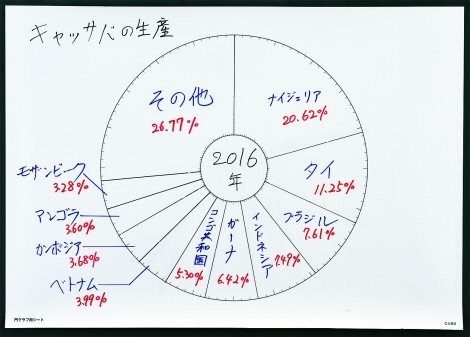 キャッサバの生産
2016
年
ナイジェリア
20.62%
タイ
11.25%
ブラジル
7.61%
インドネシア
7.49%
ガーナ
6.42%
コンゴ共和国
5.30%
ベトナム
3.99%
カンボジア
3.68%
アンゴラ
3.60%
モザンビーク
3.28%
その他
26.77%
円グラフ用シート